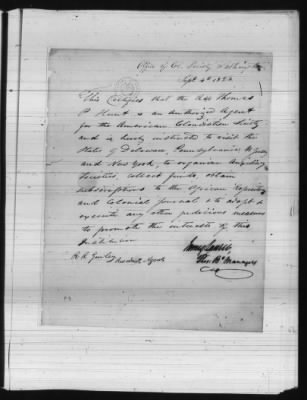 Office of Col. Society Washington
Sept 4th 18
This Certifies that the Rev Thomas
P. Hunt is an Authorized Agent
for the American Colonization Society
and is hereby instructed to visit the
States of Delaware, Pennsylvania, N. Jersey
and New York, to organize Auxiliary
Societies, collect funds, obtain
subscriptions to the African Repository
and Colonial Journal & to adopt &
execute any other judicious measures
to promote the interests of this
Institution
R. R. Gurley
Managers